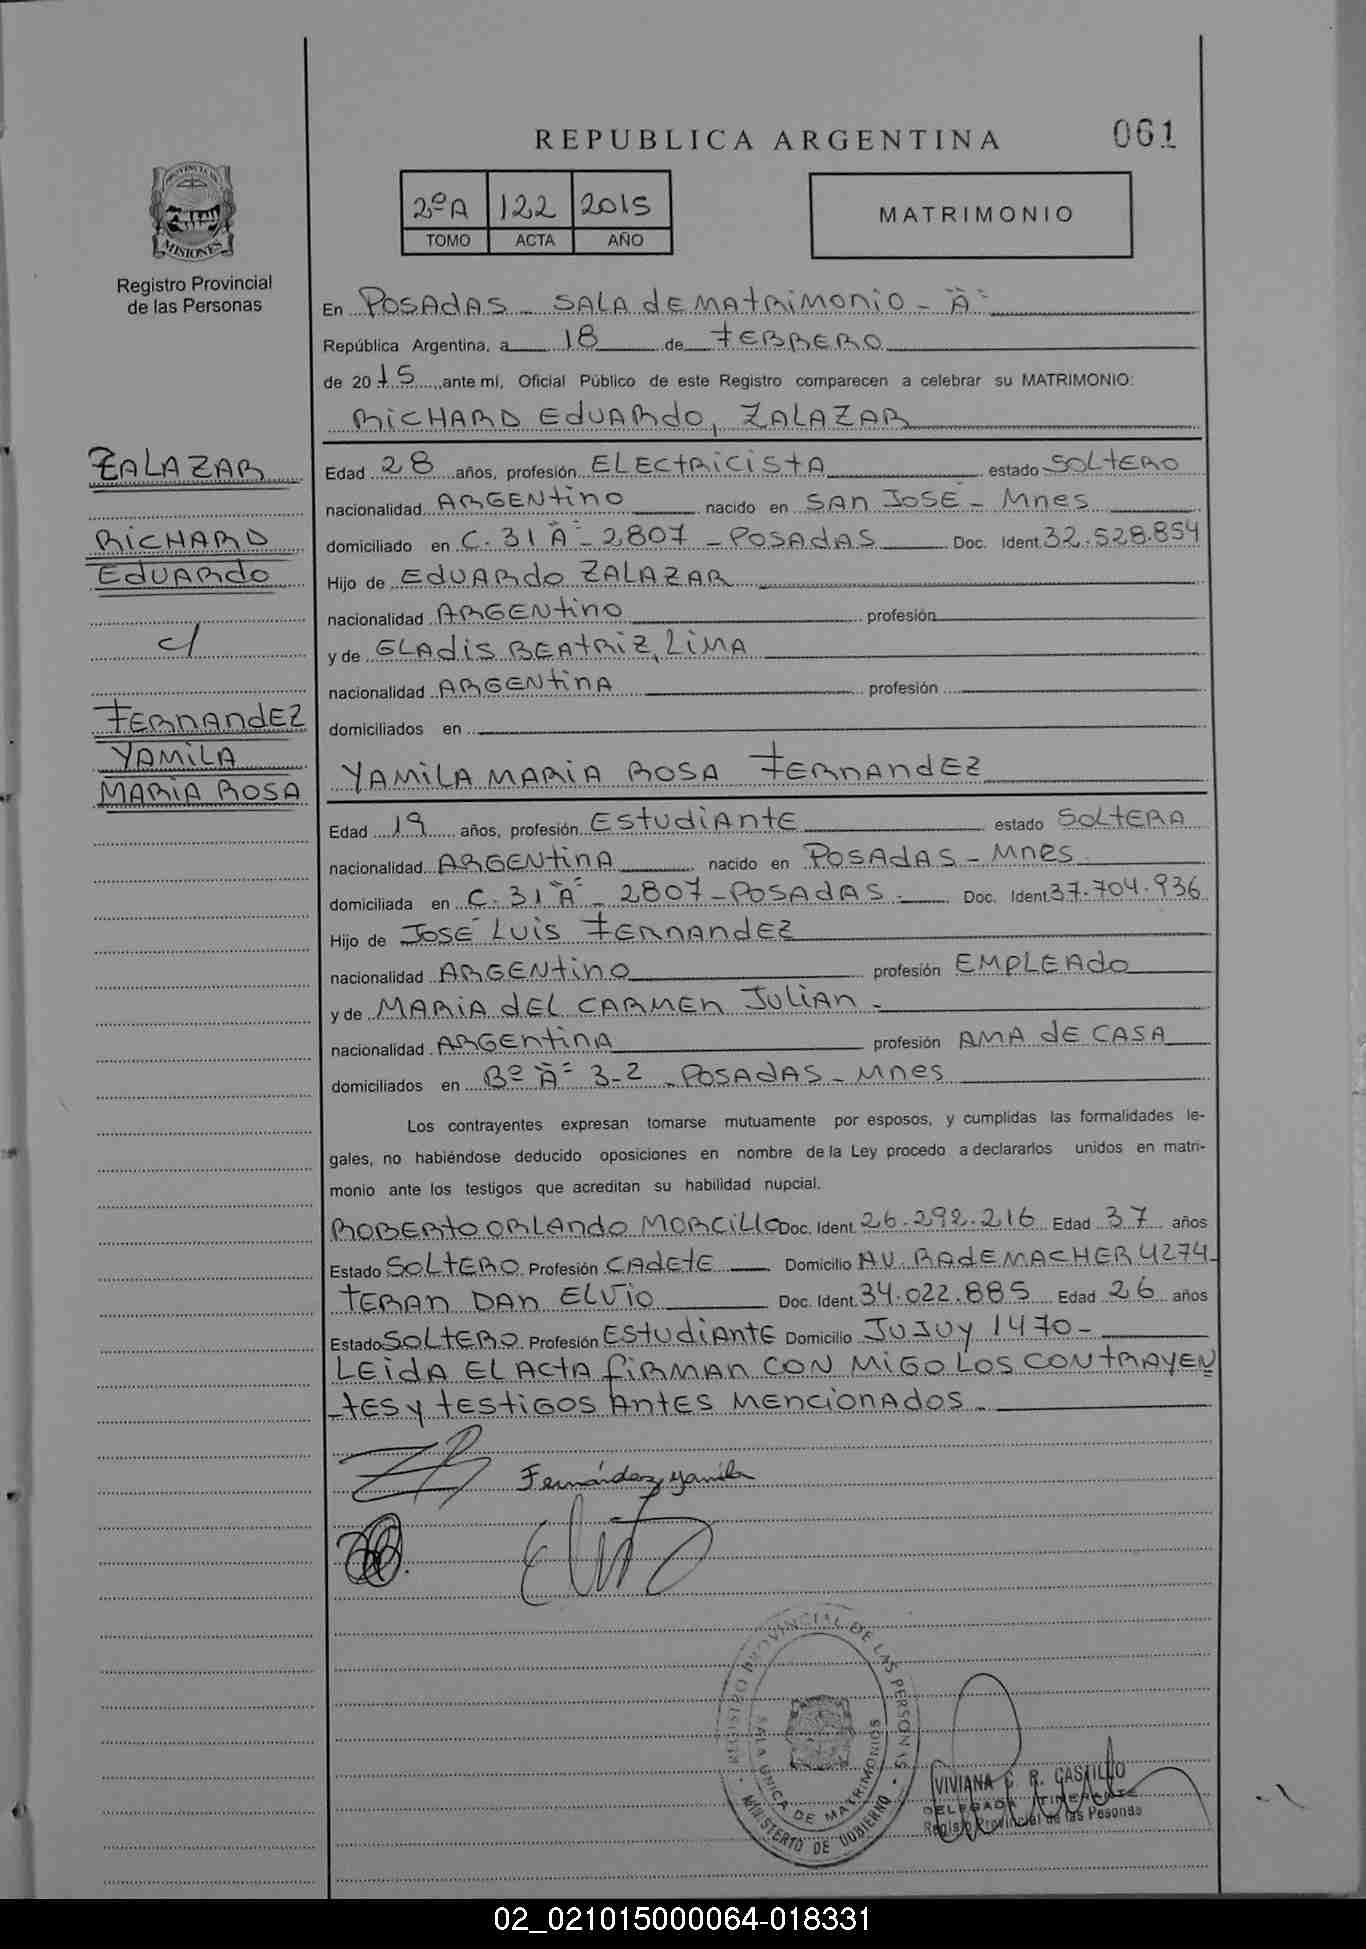 REPUBLICA ARGENTINA
061
PROVINCIA DE
MISIONES
Registro Provincial
de las Personas
2ºA 122 2015
TOMO ACTA AÑO
MATRIMONIO
En POSADAS - SALA dE MAtRiMONiO - "A"
República Argentina, a 18 de FEBRERO
de 2015 ante mi, Oficial Público de este Registro comparecen a celebrar su MATRIMONIO:
RiCHARD EdUARdo, ZALAZAR
ZALAZAR
RiCHARD
EdUARdo
c/
FERNANdEZ
YAMiLA
MARiA ROSA
Edad 28 años, profesión ELECtRiCiStA estado SOLtERO
nacionalidad ARGENtino nacido en SAN JOSÉ - Mnes
domiciliado en C. 31 "A" - 2807 - POSAdAS Doc. Ident. 32.528.854
Hijo de EdUARdo ZALAZAR
nacionalidad ARGENtino profesión
y de GLAdiS BEAtRiZ, LiMA
nacionalidad ARGENtinA profesión
domiciliados en
YAMiLA MARiA ROSA FERNANdEZ
Edad 19 años, profesión EStUdiANtE estado SOLtERA
nacionalidad ARGENtinA nacido en POSAdAS - Mnes
domiciliada en C. 31 "A" - 2807 - POSAdAS - Doc. Ident. 37.704.936
Hijo de JOSÉ LUiS FERNANdEZ
nacionalidad ARGENtino profesión EMPLEAdo
y de MARiA dEL CARMEN JULiAN -
nacionalidad ARGENtinA profesión AMA dE CASA
domiciliados en Bº "A" 3-2 - POSAdAS - Mnes
Los contrayentes expresan tomarse mutuamente por esposos, y cumplidas las formalidades le-
gales, no habiéndose deducido oposiciones en nombre de la Ley procedo a declararlos unidos en matri-
monio ante los testigos que acreditan su habilidad nupcial.
ROBERtO ORLANdo MORCiLLO Doc. Ident. 26.292.216 Edad 37 años
Estado SOLtERO Profesión CAdEtE Domicilio AV. RAdEMACHER 4274-
tERAN DAN ELViO Doc. Ident. 34.022.885 Edad 26 años
Estado SOLtERO Profesión EStUdiANtE Domicilio JUJUY 1470 -
LEidA EL ACtA FiRMAN CON MiGO LOS CONtRAYEN
-tES y tEStiGOS ANtES MENCiONAdOS -
Fernández yamila
REGISTRO PROVINCIAL DE LAS PERSONAS
SALA UNICA DE MATRIMONIOS
MINISTERIO DE GOBIERNO
VIVIANA C. R. CASTILLO
DELEGADA ITINERANTE
Registro Provincial de las Pesonas
02_021015000064-018331